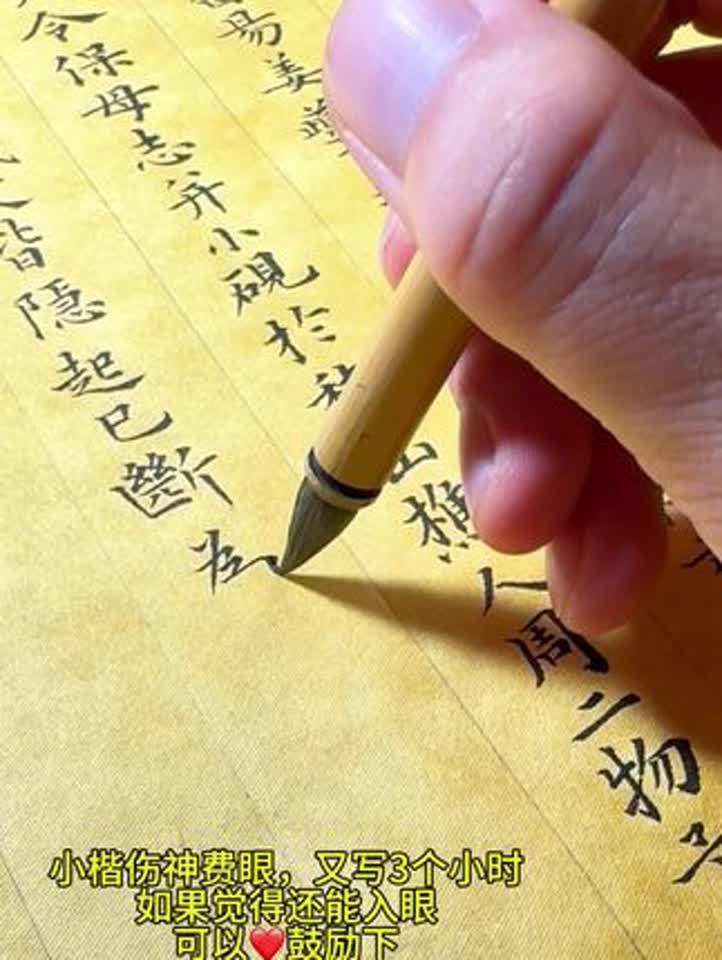 易姜
令保母志并小硯於山樵人周二物
皆隱起已斷為
小楷伤神费眼，又写3个小时
如果觉得还能入眼
可以❤️鼓励下